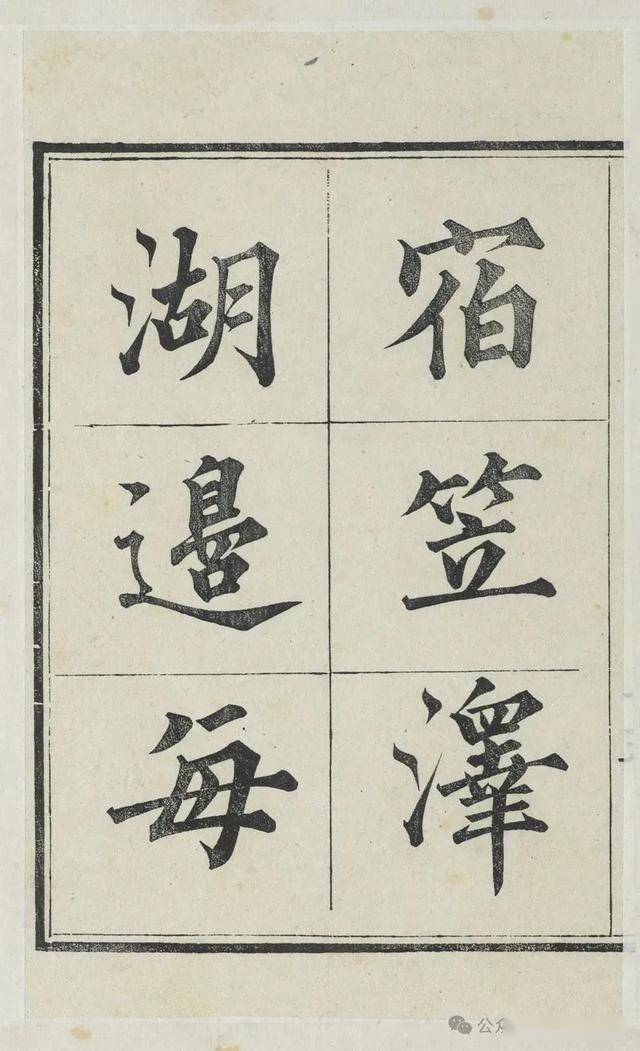 宿笠澤
湖邊每
公众